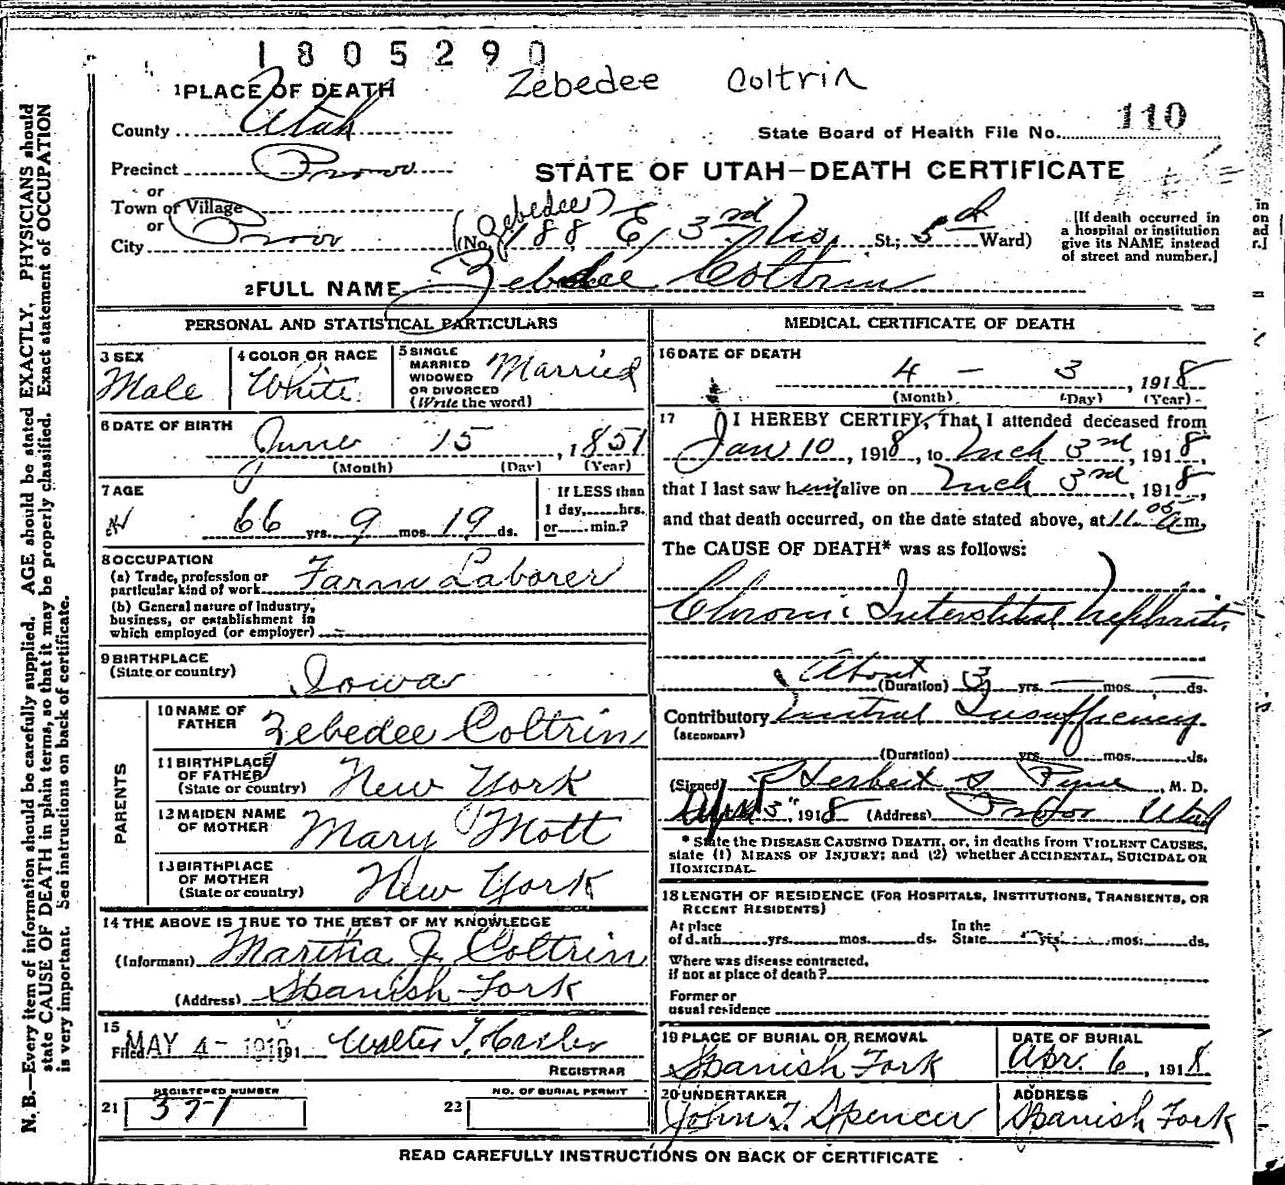 1805290
Zebedee Coltrin
1 PLACE OF DEATH
County Utah
State Board of Health File No. 110
Precinct Provo
STATE OF UTAH—DEATH CERTIFICATE
or
Town or Village
or
City Provo
(Zebedee)
(No. 188 E, 3rd No, St.; 5th Ward)
[If death occurred in
a hospital or institution
give its NAME instead
of street and number.]
2 FULL NAME Zebedee Coltrin
PERSONAL AND STATISTICAL PARTICULARS
3 SEX
Male
4 COLOR OR RACE
White
5 SINGLE
MARRIED
WIDOWED
OR DIVORCED
(Write the word)
Married
6 DATE OF BIRTH
June 15, 1851
(Month) (Day) (Year)
7 AGE
66 yrs. 9 mos. 19 ds.
If LESS than
1 day,......hrs.
or......min.?
8 OCCUPATION
(a) Trade, profession or
particular kind of work Farm Laborer
(b) General nature of Industry,
business, or establishment in
which employed (or employer)
9 BIRTHPLACE
(State or country) Iowa
PARENTS
10 NAME OF
FATHER Zebedee Coltrin
11 BIRTHPLACE
OF FATHER
(State or country) New York
12 MAIDEN NAME
OF MOTHER Mary Mott
13 BIRTHPLACE
OF MOTHER
(State or country) New York
14 THE ABOVE IS TRUE TO THE BEST OF MY KNOWLEDGE
(Informant) Martha J. Coltrin
(Address) Spanish Fork
15
Filed MAY 4 - 1918 191
REGISTRAR
REGISTERED NUMBER
21 377
NO. OF BURIAL PERMIT
22
MEDICAL CERTIFICATE OF DEATH
16 DATE OF DEATH
4 - 3, 1918
(Month) (Day) (Year)
17 I HEREBY CERTIFY, That I attended deceased from
Jan 10, 1918, to Mch 3rd, 1918,
that I last saw him alive on Mch 3rd, 1918,
and that death occurred, on the date stated above, at 11.05 a m.
The CAUSE OF DEATH* was as follows:
Chronic Interstitial Nephritis
About
(Duration) 3 yrs. — mos. — ds.
Contributory Mitral Insufficiency
(SECONDARY)
(Duration) yrs. mos. ds.
(Signed) Herbert S Pyne, M. D.
Apr 3", 1918 (Address) Provo Utah
* State the DISEASE CAUSING DEATH, or, in deaths from VIOLENT CAUSES,
state (1) MEANS OF INJURY; and (2) whether ACCIDENTAL, SUICIDAL OR
HOMICIDAL.
18 LENGTH OF RESIDENCE (FOR HOSPITALS, INSTITUTIONS, TRANSIENTS, OR
RECENT RESIDENTS)
At place
of death......yrs......mos......ds.
In the
State......yrs......mos......ds.
Where was disease contracted,
if not at place of death?
Former or
usual residence
19 PLACE OF BURIAL OR REMOVAL
Spanish Fork
DATE OF BURIAL
Apr. 6, 1918
20 UNDERTAKER
John T. Spencer
ADDRESS
Spanish Fork
READ CAREFULLY INSTRUCTIONS ON BACK OF CERTIFICATE
N. B.—Every item of information should be carefully supplied. AGE should be stated EXACTLY. PHYSICIANS should
state CAUSE OF DEATH in plain terms, so that it may be properly classified. Exact statement of OCCUPATION
is very important. See instructions on back of certificate.